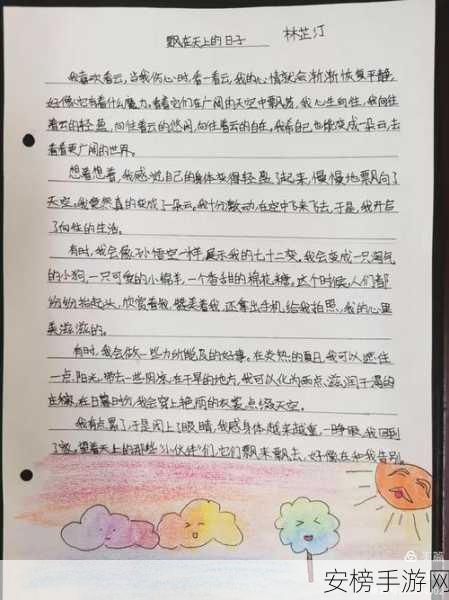 飘在天上的日子 林芷汀
我喜欢看云，当我伤心时，看一看云，我的心情就会渐渐恢复平静，
好像它有着什么魔力。看着它们在广阔的天空中飘荡，我心生向往，我向往
着云的轻盈，向往着云的悠闲，向往着云的自在，我希望自己也能变成一朵云，去
看看更广阔的世界。
想着想着，我感觉自己的身体变得轻盈了起来，慢慢地飘向了
天空。我竟然真的变成了一朵云。我十分激动，在空中飞来飞去，于是，我开启
了向往的生活。
有时，我会像孙悟空一样，展示我的七十二变，我会变成一只淘气
的小狗，一只可爱的小绵羊，一个香甜的棉花糖。这个时候，人们都
纷纷抬起头，欣赏着我，赞美着我，还拿出手机，给我拍照，我的心里
美滋滋的。
有时，我会做一些力所能及的好事。在炎热的夏日，我可以遮住
一点阳光，带去一些阴凉，在干旱的地方，我可以化为雨点，滋润干渴的
庄稼，在日暮时分，我会穿上艳丽的衣裳点缀天空。
我有点累了，于是闭上了眼睛，我感身体越来越重，一睁眼，我回到
了家，望着天上的那些“小伙伴”们，它们飘来飘去，好像在和我告别。
美篇
安榜手游网